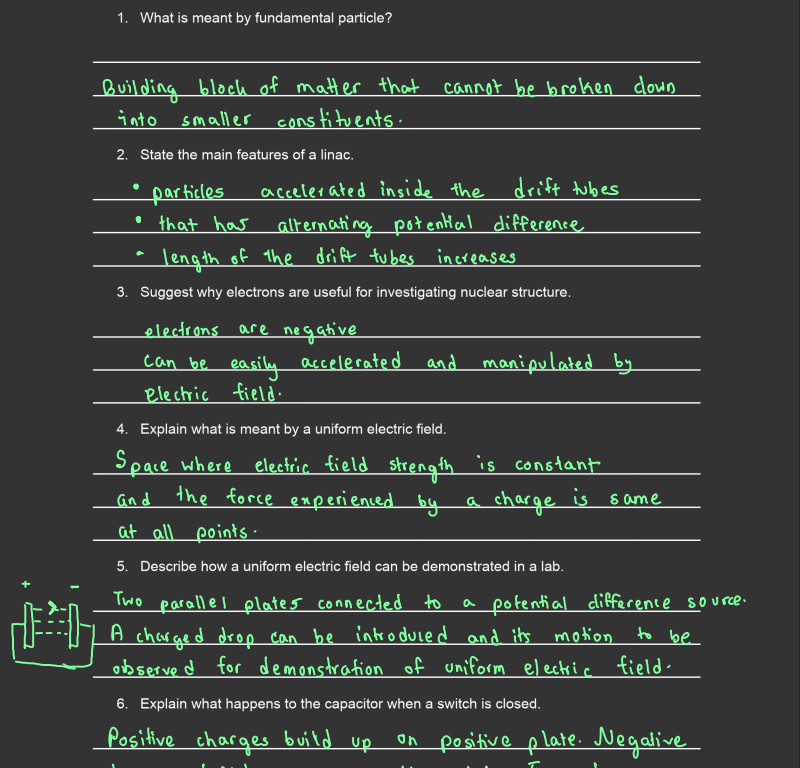 1. What is meant by fundamental particle?
Building block of matter that cannot be broken down
into smaller constituents.
2. State the main features of a linac.
• particles accelerated inside the drift tubes
• that has alternating potential difference
• length of the drift tubes increases
3. Suggest why electrons are useful for investigating nuclear structure.
electrons are negative
can be easily accelerated and manipulated by
electric field.
4. Explain what is meant by a uniform electric field.
Space where electric field strength is constant
and the force experienced by a charge is same
at all points.
5. Describe how a uniform electric field can be demonstrated in a lab.
+ -
Two parallel plates connected to a potential difference source.
A charged drop can be introduced and its motion to be
observed for demonstration of uniform electric field.
6. Explain what happens to the capacitor when a switch is closed.
Positive charges build up on positive plate. Negative